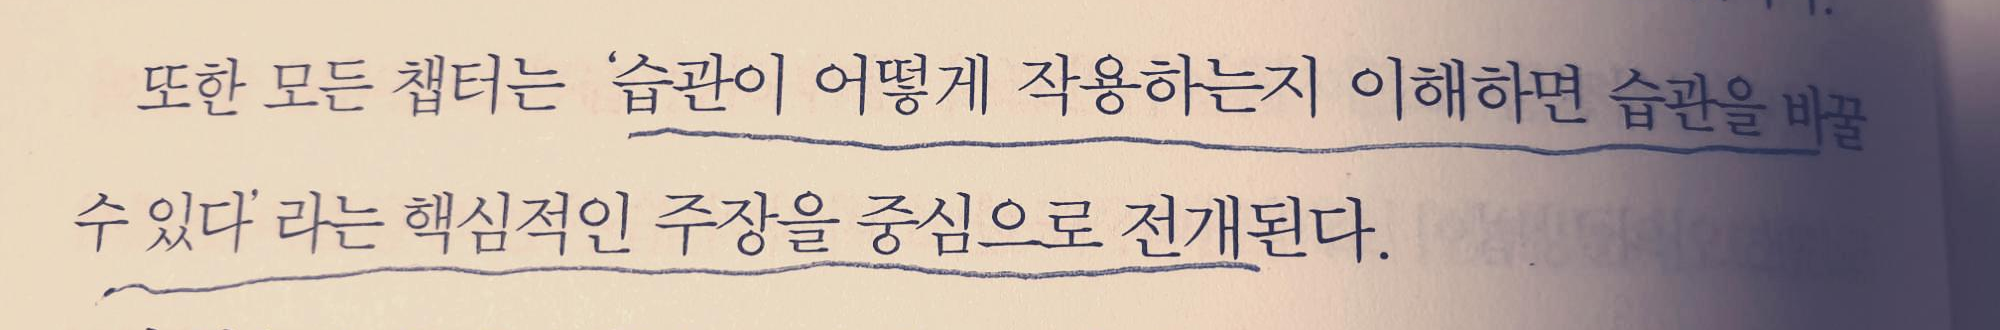 또한 모든 챕터는 ‘습관이 어떻게 작용하는지 이해하면 습관을 바꿀
수 있다’ 라는 핵심적인 주장을 중심으로 전개된다.